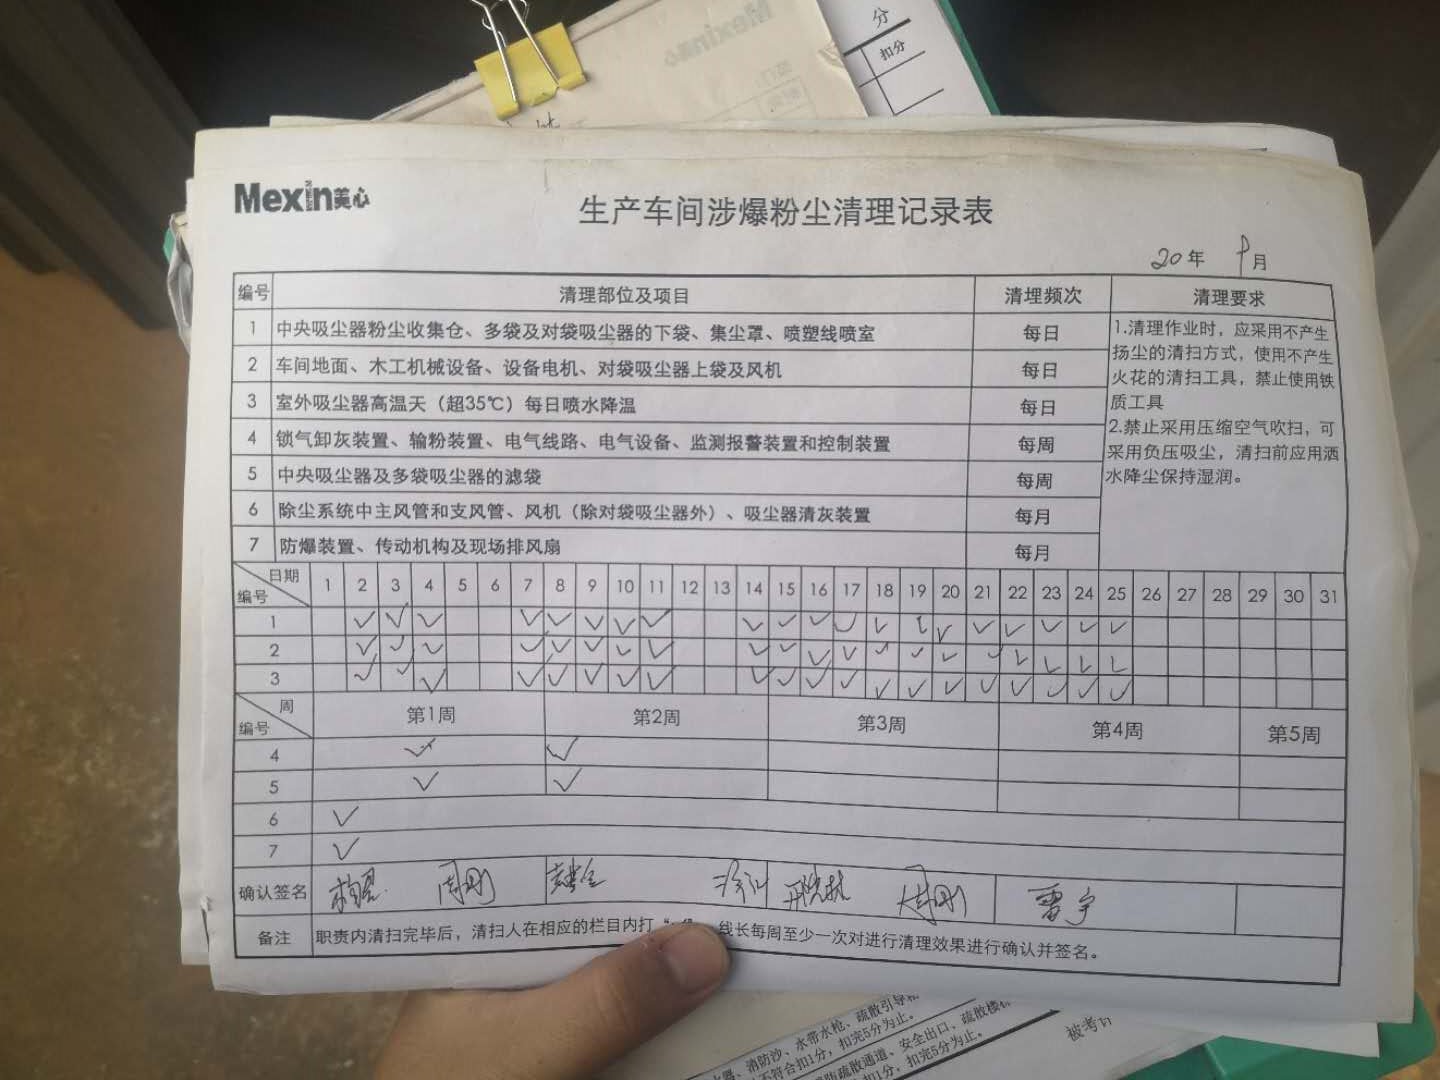 分
扣分
Mexin美心
生产车间涉爆粉尘清理记录表
20年 9月
编号 清理部位及项目 清理频次 清理要求
1 中央吸尘器粉尘收集仓、多袋及对袋吸尘器的下袋、集尘罩、喷塑线喷室 每日
2 车间地面、木工机械设备、设备电机、对袋吸尘器上袋及风机 每日
3 室外吸尘器高温天（超35℃）每日喷水降温 每日
4 锁气卸灰装置、输粉装置、电气线路、电气设备、监测报警装置和控制装置 每周
5 中央吸尘器及多袋吸尘器的滤袋 每周
6 除尘系统中主风管和支风管、风机（除对袋吸尘器外）、吸尘器清灰装置 每月
7 防爆装置、传动机构及现场排风扇 每月
1.清理作业时，应采用不产生
扬尘的清扫方式，使用不产生
火花的清扫工具，禁止使用铁
质工具
2.禁止采用压缩空气吹扫，可
采用负压吸尘，清扫前应用洒
水降尘保持湿润。
日期
编号
1 2 3 4 5 6 7 8 9 10 11 12 13 14 15 16 17 18 19 20 21 22 23 24 25 26 27 28 29 30 31
1 ✓ ✓ ✓ ✓ ✓ ✓ ✓ ✓ ✓ ✓ ✓ ✓ ✓ ✓ ✓ ✓ ✓ ✓ ✓ ✓
2 ✓ ✓ ✓ ✓ ✓ ✓ ✓ ✓ ✓ ✓ ✓ ✓ ✓ ✓ ✓ ✓ ✓ ✓ ✓ ✓
3 ✓ ✓ ✓ ✓ ✓ ✓ ✓ ✓ ✓ ✓ ✓ ✓ ✓ ✓ ✓ ✓ ✓ ✓ ✓ ✓
周
编号
第1周 第2周 第3周 第4周 第5周
4 ✓ ✓
5 ✓ ✓
6 ✓
7 ✓
确认签名 周刚 周刚 雷宇
备注 职责内清扫完毕后，清扫人在相应的栏目内打 线长每周至少一次对进行清理效果进行确认并签名。
消防沙、水带水枪、疏散引导
不符合扣1分，扣完5分为止。
疏散通道、安全出口、疏散楼梯
扣1分，扣完5分为止。
被考评